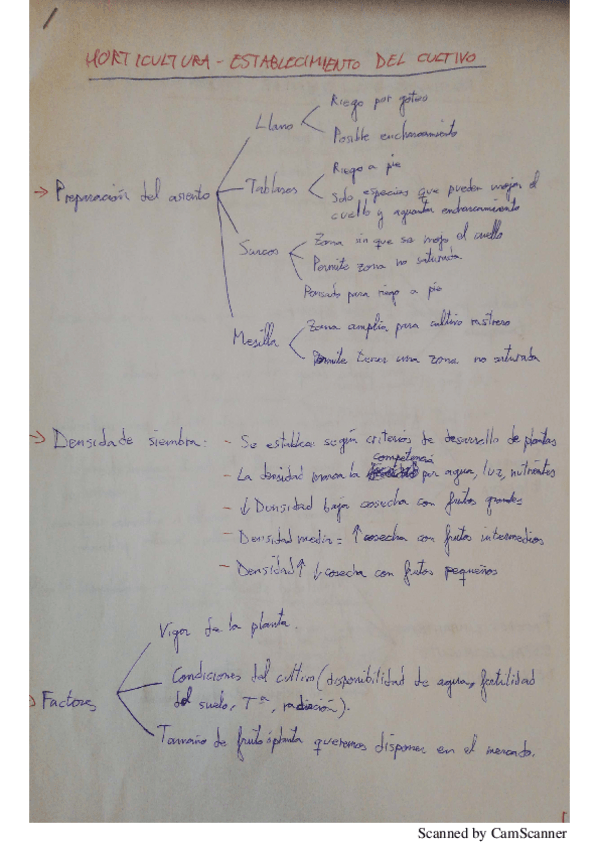 HORTICULTURA - ESTABLECIMIENTO DEL CULTIVO
→ Preparación del asiento
Llano
Riego por goteo
Posible encharcamiento
Tablares
Riego a pie
Solo especies que pueden mojar el
cuello y aguantar encharcamiento
Surcos
Zona sin que se moje el cuello
Permite zona no saturada
Pensado para riego a pie
Mesilla
Zona amplia para cultivo rastrero
Permite tener una zona no saturada
→ Densidad de siembra:
- Se establece según criterios de desarrollo de plantas
competencia
- La densidad marca la por agua, luz, nutrientes
- ↓ Densidad baja cosecha con frutos grandes
- Densidad media = ↑ cosecha con frutos intermedios
- Densidad ↑ ↓ cosecha con frutos pequeños
→ Factores
Vigor de la planta.
Condiciones del cultivo (disponibilidad de agua, fertilidad
del suelo, Tª, radiación).
Tamaño de fruto/planta queremos disponer en el mercado.
Scanned by CamScanner